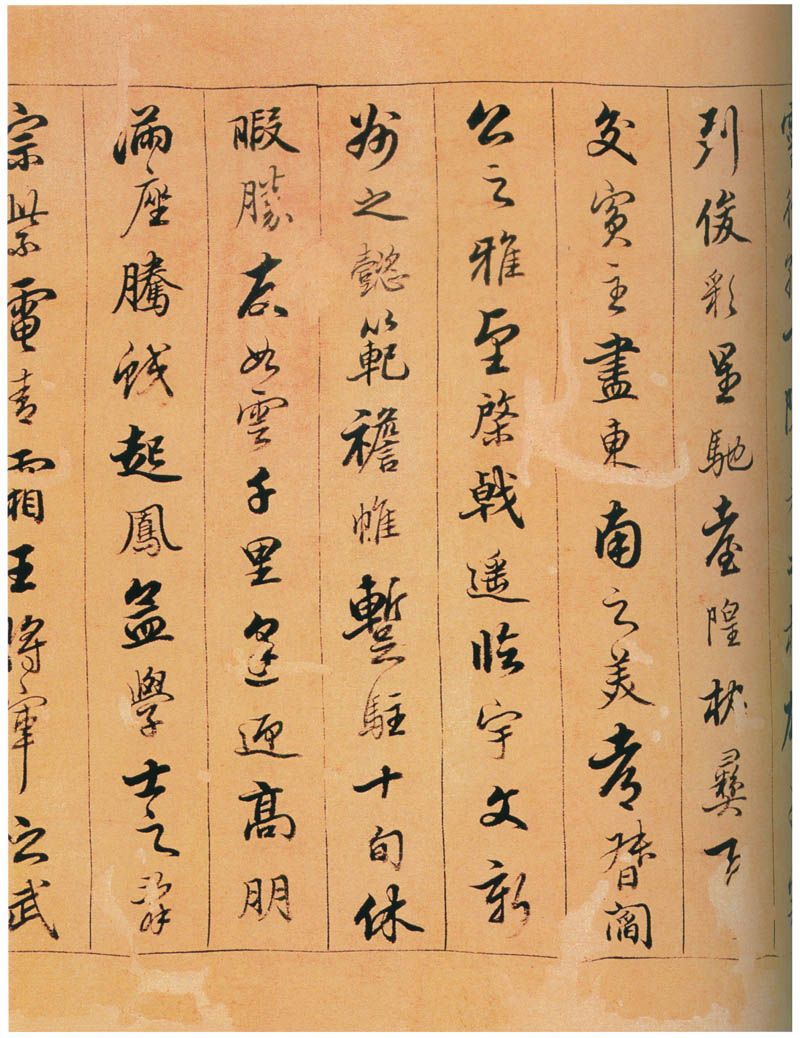 列俊彩星馳臺隍枕彝下
交賓主盡東南之美都督閻
公之雅望棨戟遥臨宇文新
州之懿範襜帷蹔駐十旬休
暇勝友如雲千里逢迎高朋
滿座騰蛟起鳳孟學士之詞
宗紫電青霜王將軍之武